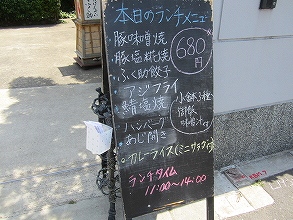 本日のランチメニュー
・豚味噌焼
・豚塩糀焼
・ふく助餃子
・アジフライ
・鯖塩焼
・ハンバーグ
・あじ開き
・カレーライス(ミニサラダ付)
680円
小鉢3種
御飯
味噌汁
ランチタイム
11:00〜14:00